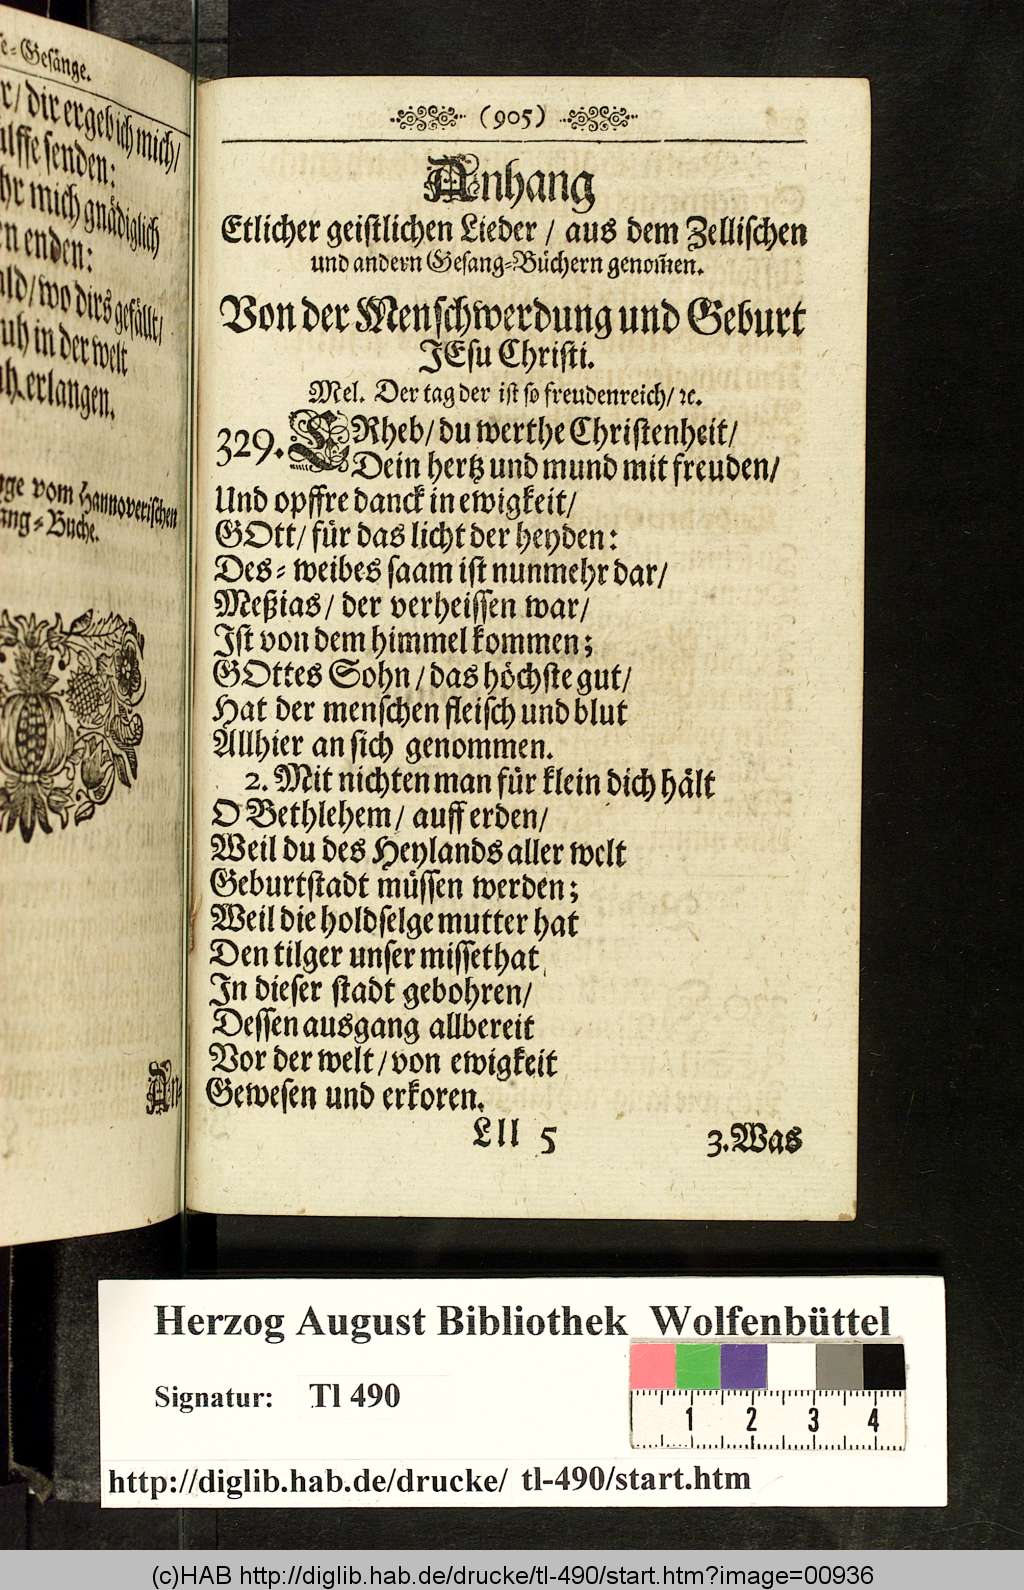 e-Gesänge.
r/ dir ergeb ich mich/
ülffe senden:
hr mich gnädiglich
en enden:
ald/ wo dirs gefällt/
uh in der welt
erlangen.
vom Hannoverischen
ang-Buche.
An-
(905)
Anhang
Etlicher geistlichen Lieder / aus dem Zellischen
und andern Gesang-Büchern genom̃en.
Von der Menschwerdung und Geburt
JEsu Christi.
Mel. Der tag der ist so freudenreich/ ꝛc.
329. ERheb/ du werthe Christenheit/
Dein hertz und mund mit freuden/
Und opffre danck in ewigkeit/
GOtt/ für das licht der heyden:
Des-weibes saam ist nunmehr dar/
Meßias/ der verheissen war/
Ist von dem himmel kommen;
GOttes Sohn / das höchste gut/
Hat der menschen fleisch und blut
Allhier an sich genommen.
2. Mit nichten man für klein dich hält
O Bethlehem/ auff erden/
Weil du des Heylands aller welt
Geburtstadt müssen werden;
Weil die holdselge mutter hat
Den tilger unser missethat
In dieser stadt gebohren/
Dessen ausgang allbereit
Vor der welt / von ewigkeit
Gewesen und erkoren.
Lll 5
3. Was
Herzog August Bibliothek Wolfenbüttel
Signatur: Tl 490
1 2 3 4
http://diglib.hab.de/drucke/ tl-490/start.htm
(c)HAB http://diglib.hab.de/drucke/tl-490/start.htm?image=00936